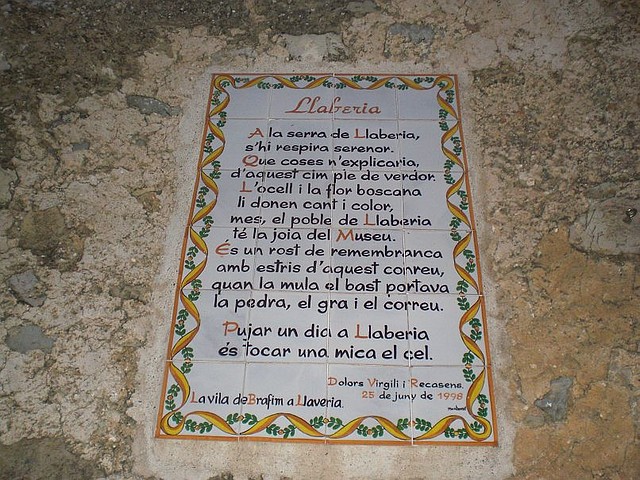 Llaberia
A la serra de Llaberia,
s'hi respira serenor.
Que coses n'explicaria,
d'aquest cim ple de verdor.
L'ocell i la flor boscana
li donen cant i color,
mes, el poble de Llaberia
té la joia del Museu.
És un rost de remembranca
amb estris d'aquest conreu,
quan la mula el bast portava
la pedra, el gra i el correu.
Pujar un dia a Llaberia
és tocar una mica el cel.
Dolors Virgili i Recasens.
25 de juny de 1998
La vila de Brafim a Llaveria.